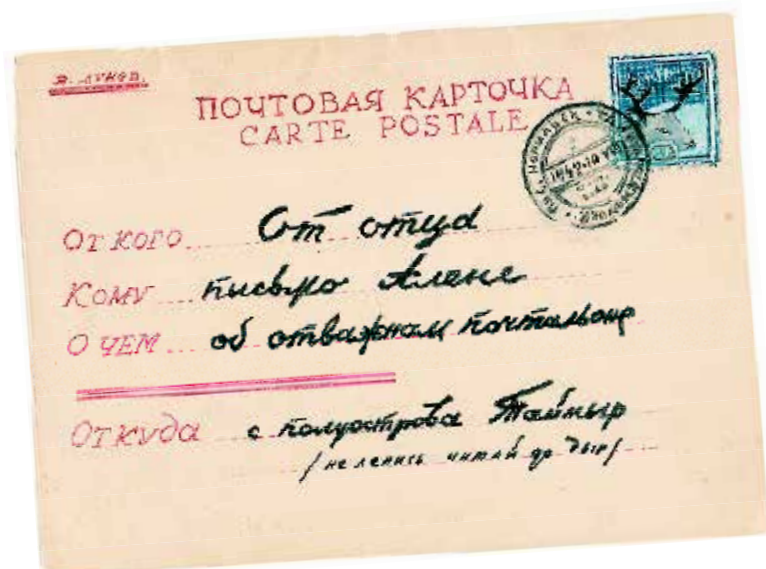 ПОЧТОВАЯ КАРТОЧКА
CARTE POSTALE
ОТ КОГО От отца
КОМУ письмо Алене
О ЧЕМ об отважном почтальоне
ОТКУДА с полуострова Таймыр
/не ленись читай до дыр/